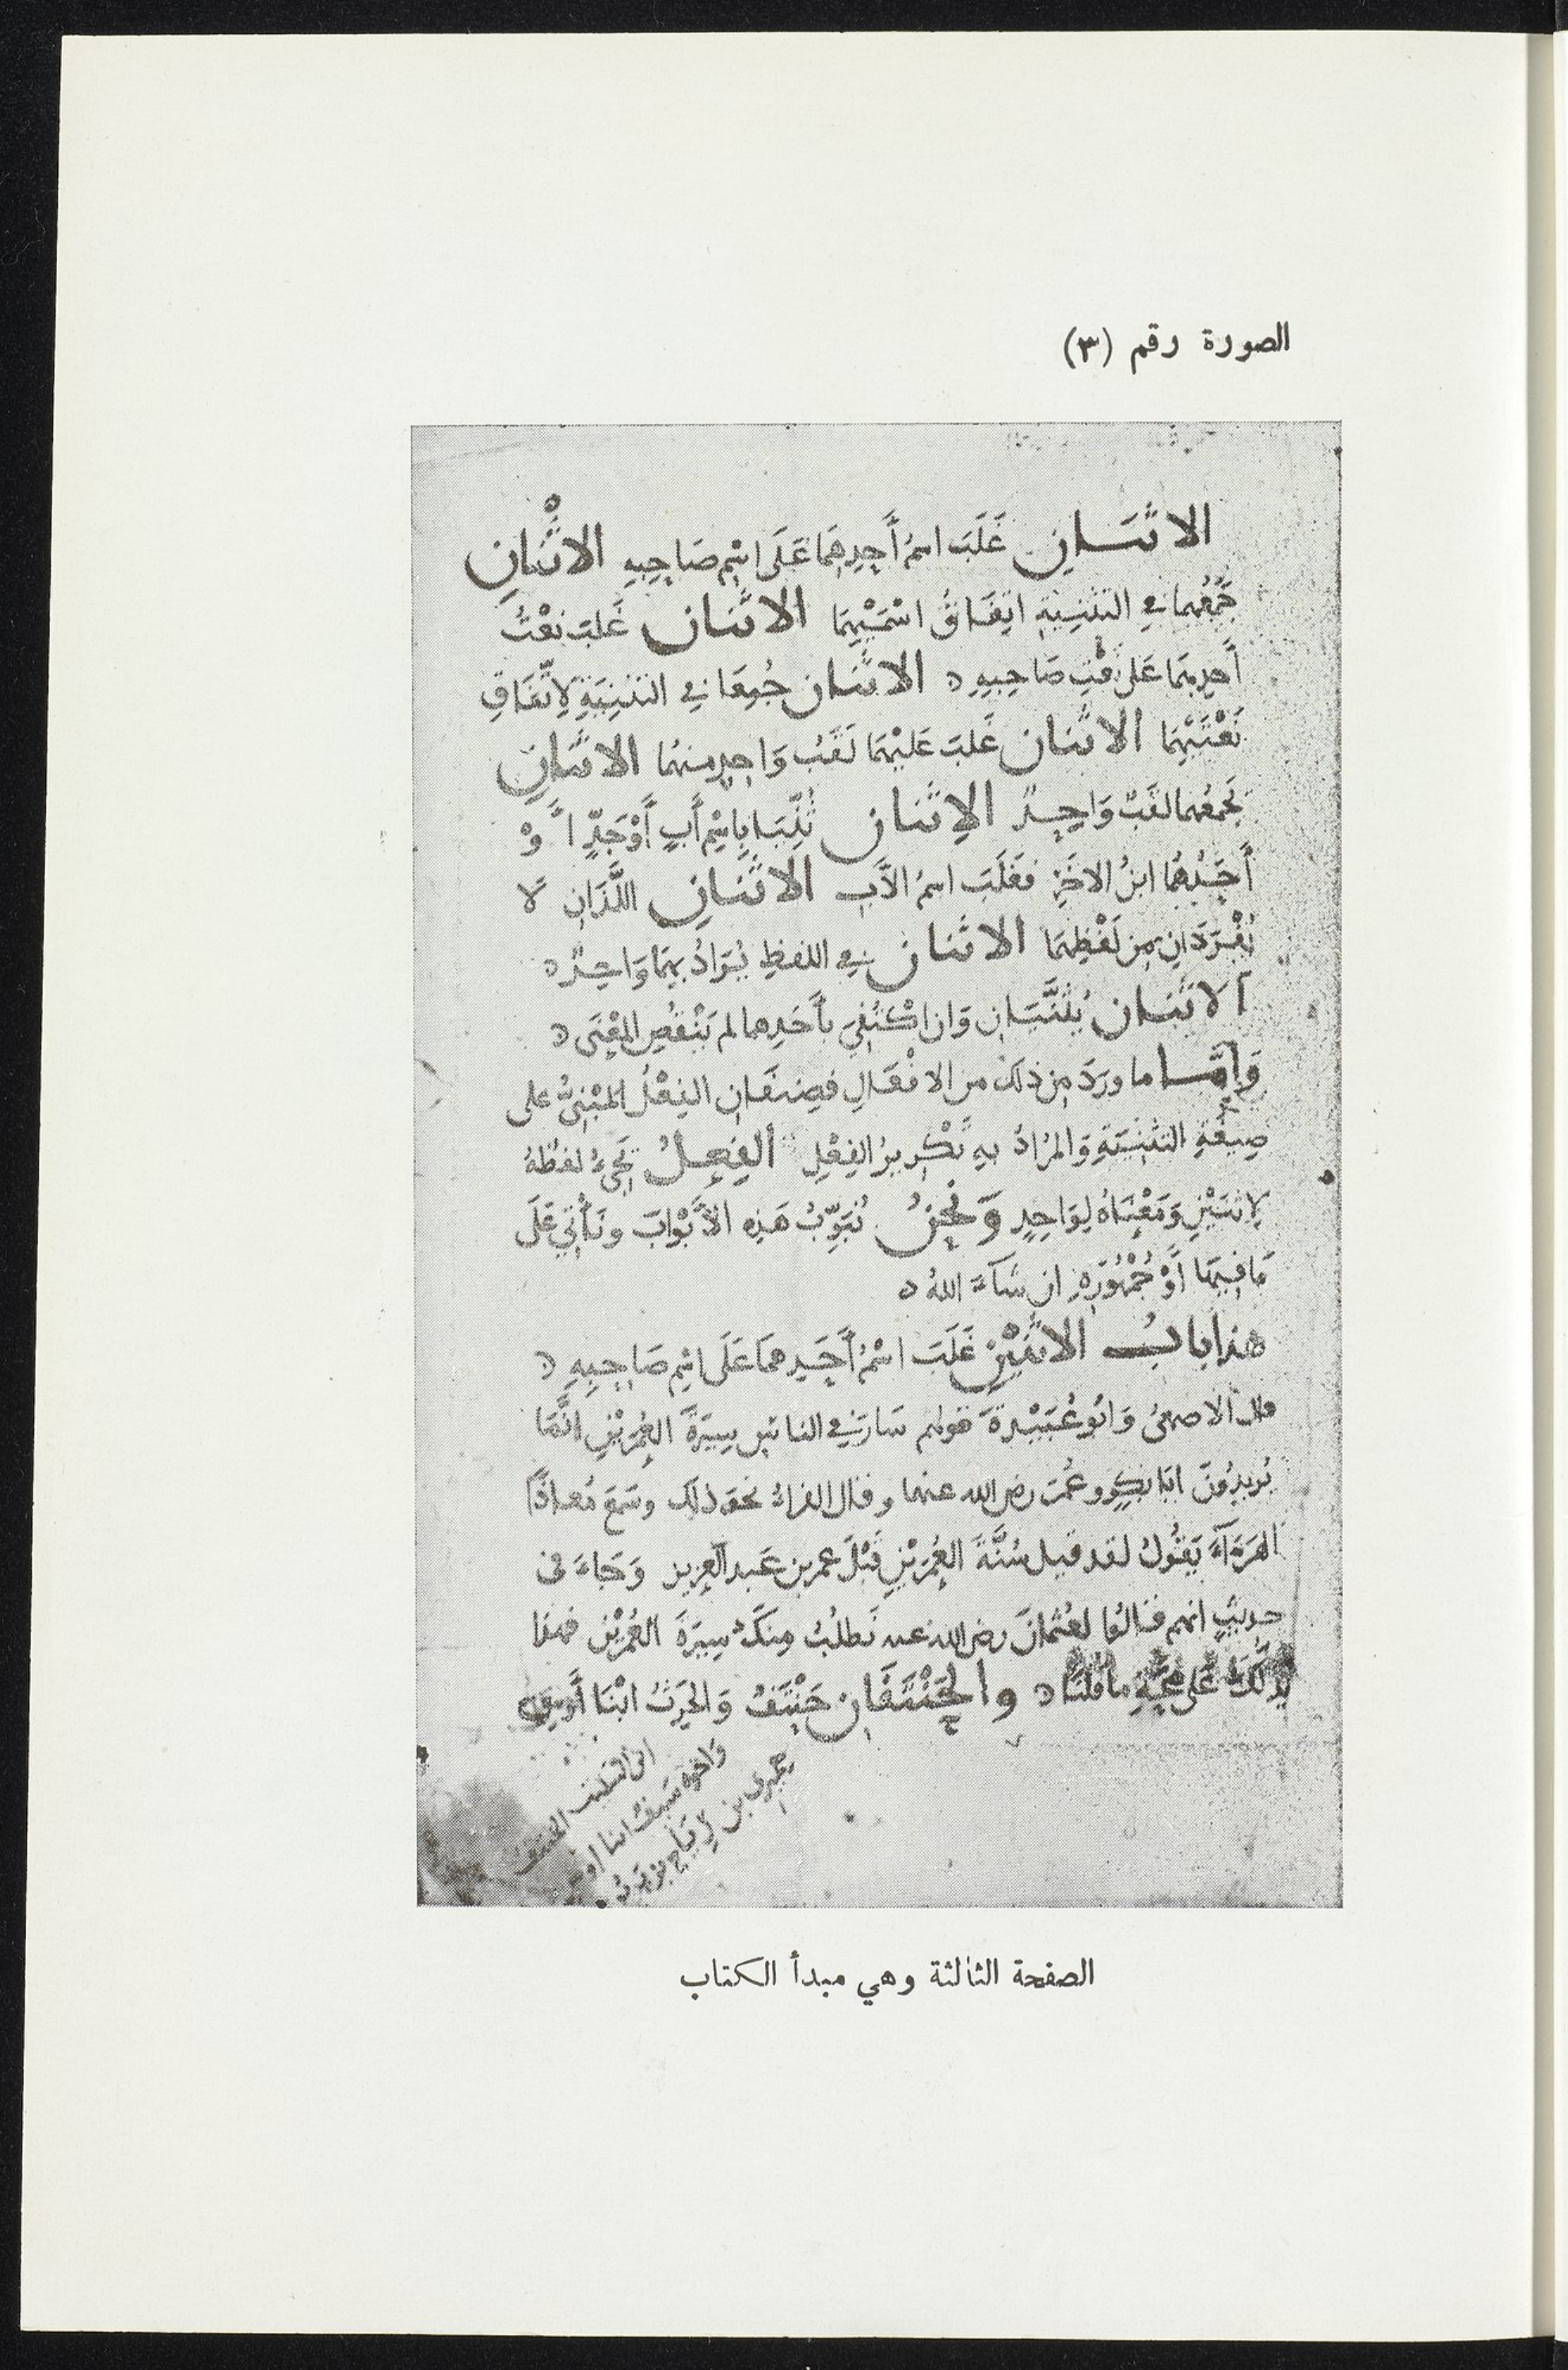 الصورة رقم (٣)
الاثنان غَلَبَ اسمُ أَحدِهِمَا عَلَى اسْمِ صَاحِبِهِ الاثْنَانِ
جَمَعُهما في التثنيةِ اتفَاقُ اسْمَيْهِمَا الاثنان غَلبَ نعْتُ
أَحدِهِمَا عَلى نَعْتِ صَاحِبِهِ الاثنان جُمِعَا في التثنيَةِ لاتّفَاقِ
نَعْتَيْهِمَا الاثنان غَلبَ عَليْهمَا لَقَبُ وَاحِدٍ منهُمَا الاثنانِ
يَجمعُهما لقَبٌ وَاحِدٌ الاثنان ثُنِّيَا بِاسْمِ أَبٍ أَوْ جَدٍّ أَوْ
أَحَدُهُمَا ابنُ الآخَرِ فغَلَبَ اسمُ الأَبِ الاثنانِ اللَّذَانِ لَا
يُفْرَدَانِ مِن لَفْظِهِمَا الاثنان في اللفظِ يُرَادُ بِهِمَا وَاحِدٌ
الاثنان يُثَنَّيَانِ وَان اكْتُفِيَ بأَحَدِهما لم يَنْقُصِ المَعْنَى
وَأمَّا ما ورَدَ مِن ذلك من الافْعَالِ فصِنفَان الفِعْلُ المَبْنِيُّ على
صِيغَةِ التثنِيَةِ وَالمرَادُ بهِ تَكْرِيرُ الفِعْلِ الفِعلُ يَجِيءُ لفظُهُ
لاثنَيْنِ وَمَعْنَاهُ لِوَاحِدٍ وَنحنُ نُبَوِّبُ هَذِه الأَبْوَابَ ونَأْتِي عَلَى
مَا فِيهَا أَوْ جُمْهُورِهِ ان شَاءَ اللهُ
هذا بابُ الاثنَيْنِ غَلَبَ اسْمُ أَحَدِهمَا عَلَى اسْمِ صَاحِبِهِ
قال الاصمعىُّ وَابُو عُبَيْدةَ قولهم سَارَ في الناسِ سِيرَةَ العُمَرَيْنِ انَّمَا
يُرِيدُونَ ابَا بكرٍ وعُمَرَ رضى الله عنهما وقال الفراءُ نحوَ ذلك وسَمِعَ مُعاذًا
الهَرَّاءَ يَقُولُ لقد قيل سُنَّةَ العُمَرَيْنِ قَبْلَ عمر بن عَبد العزيز وَجَاءَ في
حديثٍ انهم قَالُوا لعُثمَانَ رضى الله عنه نَطلُبُ مِنكَ سِيرَةَ العُمَرَيْنِ فهذا
يَدُلُّكَ عَلى صِحَّةِ ما قلنَا والحَنْتَفَانِ حَنْتَفُ وَالحرثُ ابْنَا أَوسِ
ابن
وَاخوه سَيفُ ابنا اوس
حميرى بن رِيَاح بن يربوع
الصفحة الثالثة وهي مبدأ الكتاب